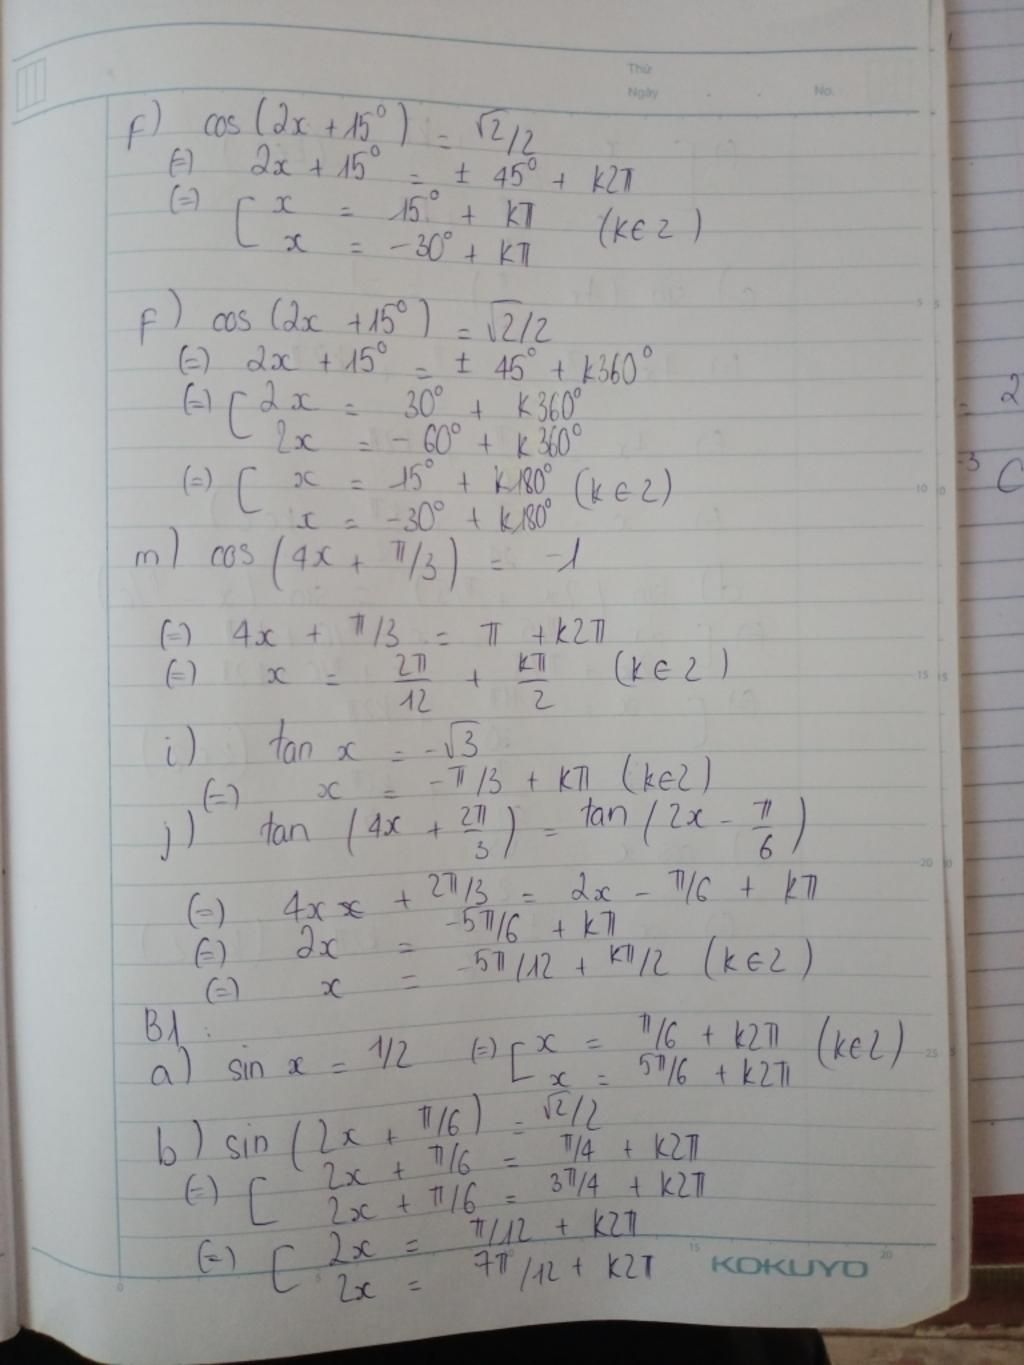 Thứ
Ngày . . No.
f) cos(2x + 15°) = √2/2
(=) 2x + 15° = ± 45° + k2π
(=) [ x = 15° + kπ (k∈Z)
x = -30° + kπ
f) cos(2x + 15°) = √2/2
(=) 2x + 15° = ± 45° + k360°
(=) [ 2x = 30° + k360°
2x = - 60° + k360°
(=) [ x = 15° + k180° (k∈Z)
x = -30° + k180°
m) cos(4x + π/3) = -1
(=) 4x + π/3 = π + k2π
(=) x = 2π/12 + kπ/2 (k∈Z)
i) tan x = -√3
(=) x = -π/3 + kπ (k∈Z)
j) tan (4x + 2π/3) = tan(2x - π/6)
(=) 4x + 2π/3 = 2x - π/6 + kπ
(=) 2x = -5π/6 + kπ
(=) x = -5π/12 + kπ/2 (k∈Z)
B1:
a) sin x = 1/2 (=) [ x = π/6 + k2π (k∈Z)
x = 5π/6 + k2π
b) sin (2x + π/6) = √2/2
(=) [ 2x + π/6 = π/4 + k2π
2x + π/6 = 3π/4 + k2π
(=) [ 2x = π/12 + k2π
2x = 7π/12 + k2π
KOKUYO